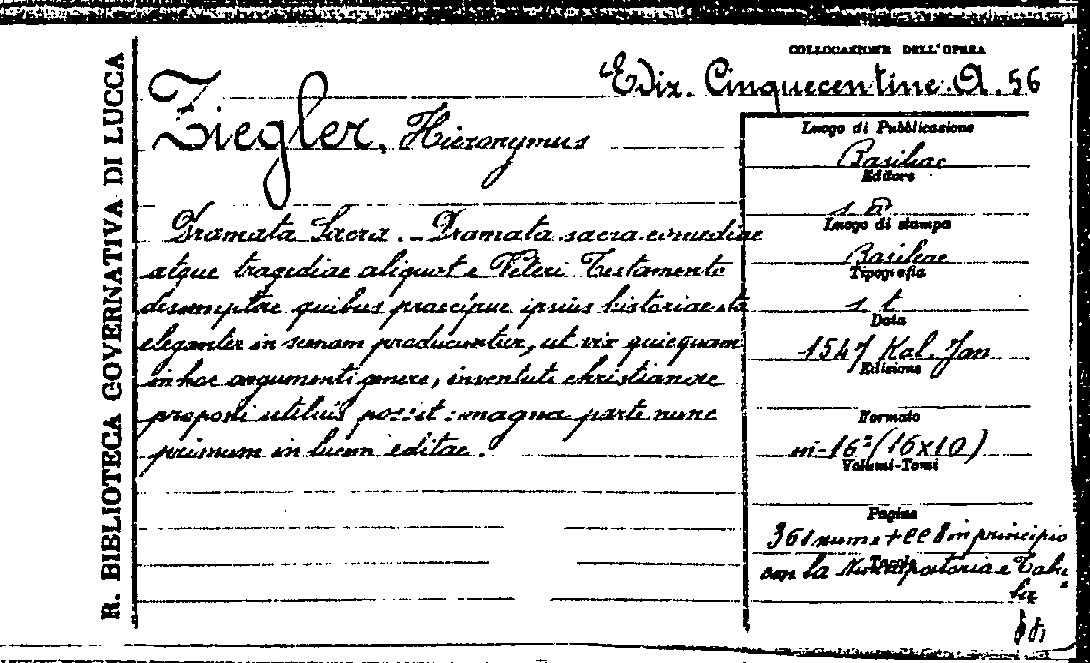 R. BIBLIOTECA GOVERNATIVA DI LUCCA
COLLOCAZIONE DELL'OPERA
Ediz. Cinquecentine A. 56
Ziegler, Hieronymus
Dramata Sacra. - Dramata sacra comediae
atque tragediae aliquot e Veteri Testamento
desumptae quibus praecipue ipsius historiae
eleganter in scenam producuntur, ut vix quicquam
in hoc argumenti genere, iuventuti christianae
proponi utilius posset: magna parte nunc
primum in lucem editae.
Luogo di Pubblicazione
Basileae
Editore
s. n.
Luogo di stampa
Basileae
Tipografia
s. t.
Data
1547 Kal. Jan
Edizione
Formato
in-16° (16x10)
Volumi-Tomi
Pagine
361 num. + cc 8 in principio
Tavole
con la